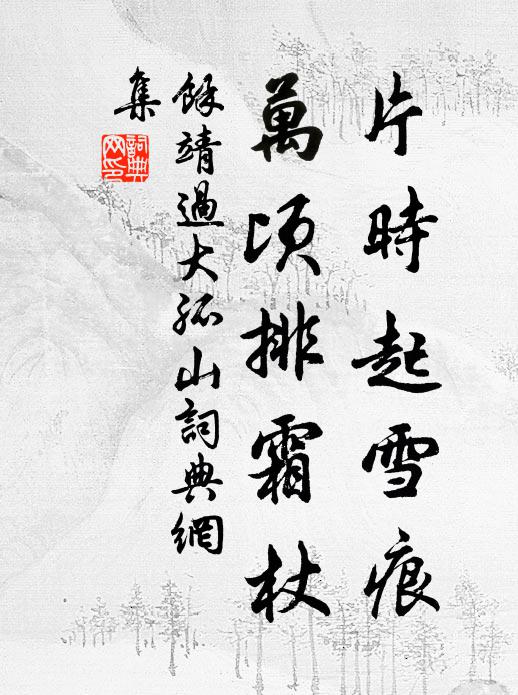 片時起雪痕
萬頃排霜杖
餘靖過大孤山詞典網
集
詞典網印